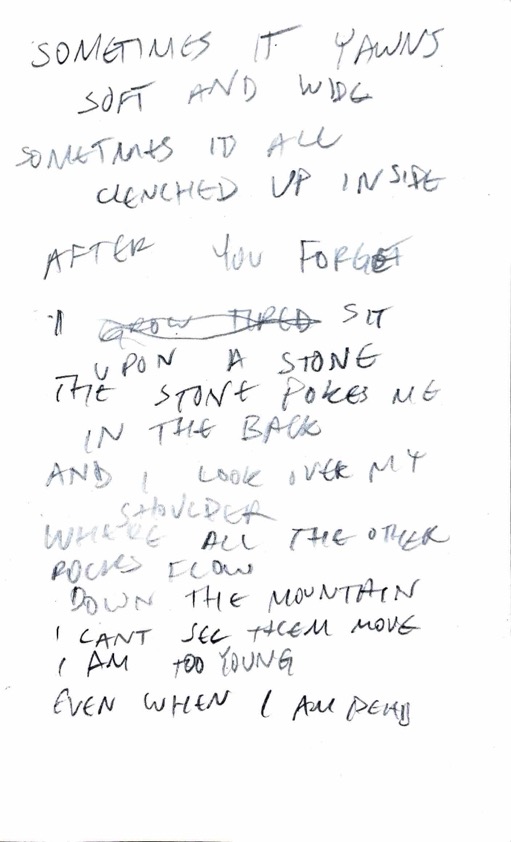 SOMETIMES IT YAWNS
SOFT AND WIDE
SOMETIMES ID ALL
CLENCHED UP INSIDE
AFTER YOU FORGET
I GROW TIRED SIT
UPON A STONE
THE STONE POKES ME
IN THE BACK
AND I LOOK OVER MY
SHOULDER
WHERE ALL THE OTHER
ROCKS FLOW
DOWN THE MOUNTAIN
I CANT SEE THEM MOVE
I AM TOO YOUNG
EVEN WHEN I AM DEAD